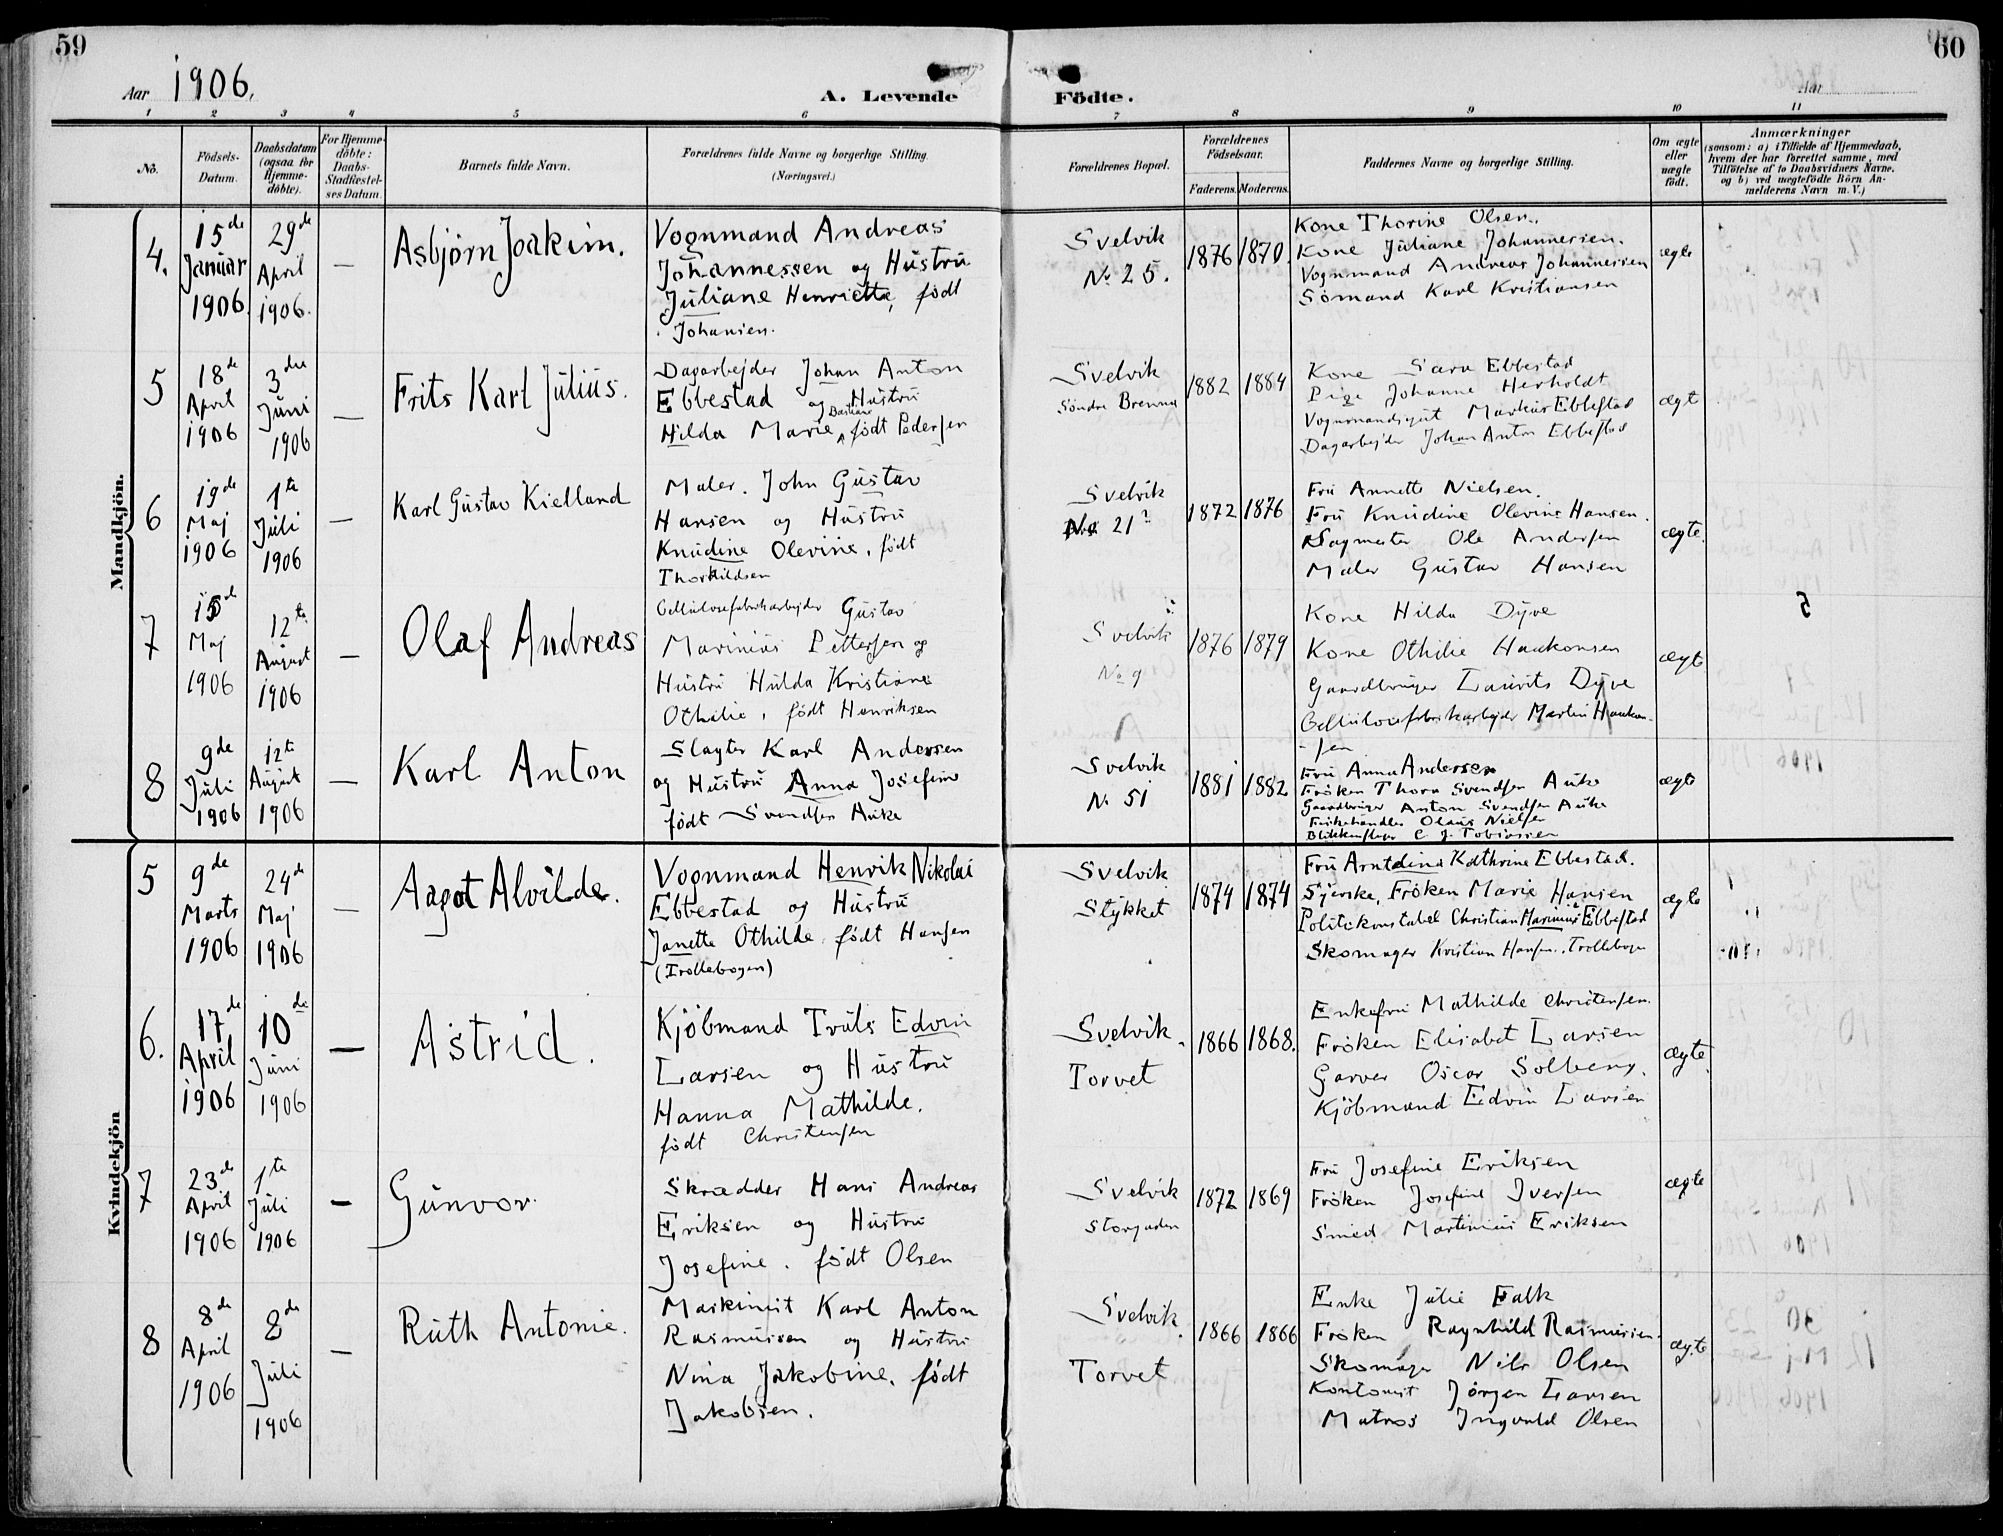 59
60
Aar 1906.
A. Levende Födte.
Aar
1 2 3 4 5 6 7 8 9 10 11
No.
Födsels-Datum.
Daabsdatum (ogsaa for Hjemme-döbte).
For Hjemme-döbte: Daabs-Stadfæstel-ses Datum.
Barnets fulde Navn.
Forældrenes fulde Navne og borgerlige Stilling.
(Næringsvei.)
Forældrenes Bopæl.
Forældrenes Födselsaar.
Faderens. Moderens.
Faddernes Navne og borgerlige Stilling.
Om ægte eller uægte födt.
Anmærkninger
(saasom: a) i Tilfælde af Hjemmedaab,
hvem der har forrettet samme, med
Tilföielse af to Daabsvidners Navne,
og b) ved uægtefödte Börn An-
melderens Navn m. V.)
Mandkjön.
4.
15de Januar 1906.
29de April 1906.
—
Asbjørn Joakim.
Vognmand Andreas
Johannessen og Hustru
Juliane Henriette, født
Johansen.
Svelvik
No 25.
1876 1870.
Kone Thorine Olsen.
Kone Juliane Johannessen.
Vognmand Andreas Johannessen
Sømand Karl Kristiansen
ægte
5
18de April 1906
3die Juni 1906
—
Frits Karl Julius.
Dagarbejder Johan Anton
Ebbestad og Hustru
Hilda Marie Bastiane født Pedersen
Svelvik
Søndre Brenna
1882 1884
Kone Sara Ebbestad
Pige Johanne Herholdt
Vognmandsgut Markus Ebbestad
Dagarbejder Johan Anton Ebbestad
ægte
6
19de Maj 1906
1te Juli 1906
—
Karl Gustav Kielland
Maler. John Gustav
Hansen og Hustru
Knudine Olevine, født
Thorkildsen
Svelvik
No 21
1872 1876
Fru Annette Nielsen.
Fru Knudine Olevine Hansen.
Sagmester Ole Andersen
Maler Gustav Hansen
ægte.
7
15de Maj 1906
12te August 1906
—
Olaf Andreas
Cellulosefabrikarbejder Gustav
Marinius Pettersen og
Hustru Hulda Kristiane
Othilie, født Henriksen
Svelvik
No 9
1876 1879
Kone Hilda Dyve
Kone Othilie Haakonsen
Gaardbruger Laurits Dyve
Cellulosefabrikarbejder Martin Haakon-
-sen
ægte
8
9de Juli 1906
12te August 1906
—
Karl Anton
Slagter Karl Andersen
og Hustru Anna Josefine
født Svendsen Auke
Svelvik
No 51
1881 1882
Fru Anna Andersen
Frøken Thora Svendsen Auke
Gaardbruger Anton Svendsen Auke
Fiskehandler Olaus Nielsen
Blikkenslager C. J. Tobiassen
ægte
Kvindekjön
5
9de Marts 1906
24de Maj 1906
—
Aagot Alvilde.
Vognmand Henrik Nikolai
Ebbestad og Hustru
Janette Othilde født Hansen
(Trollebogen)
Svelvik
Stykket
1874 1874
Fru Arntdina Kathrine Ebbestad.
Syerske, Frøken Marie Hansen
Politikonstabel Christian Marinius Ebbestad
Skomager Kristian Hansen, Trollebogen
ægte
6.
17de April 1906
10de Juni 1906
—
Astrid.
Kjøbmand Truls Edvin
Larsen og Hustru
Hanna Mathilde.
født Christensen
Svelvik.
Torvet
1866 1868.
Enkefru Mathilde Christensen.
Frøken Elisabet Larsen
Garver Oscar Solberg.
Kjøbmand Edvin Larsen
ægte.
7
23de April 1906
1te Juli 1906
—
Gunvor.
Skrædder Hans Andreas
Eriksen og Hustru
Josefine. født Olsen
Svelvik
Storgaden
1872 1869
Fru Josefine Eriksen
Frøken Josefine Iversen
Smed Martinius Eriksen
ægte
8
8de April 1906
8de Juli 1906
—
Ruth Antonie.
Maskinist Karl Anton
Rasmussen og Hustru
Nina Jakobine. født
Jakobsen.
Svelvik.
Torvet
1866 1866
Enke Julie Falk
Frøken Ragnhild Rasmussen.
Skomager Nils Olsen
Kontorist Jørgen Larsen
Matros Ingvald Olsen
ægte